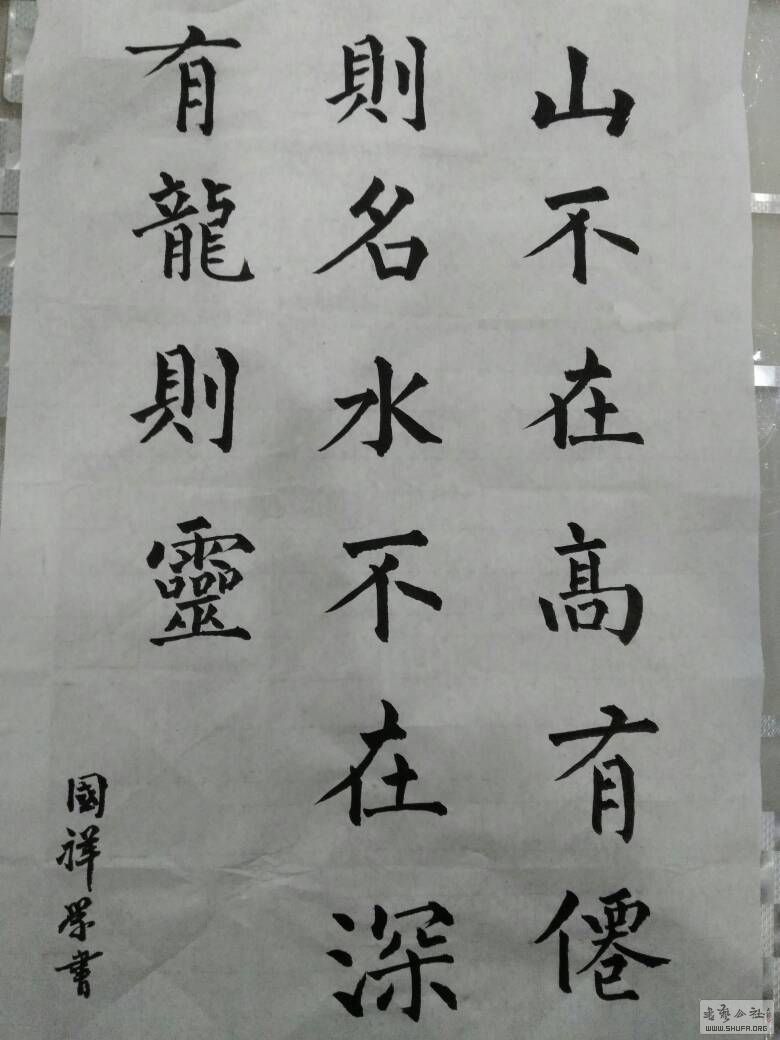 山不在高有僊
則名水不在深
有龍則靈
國祥學書
書藝公社
WWW.SHUFA.ORG